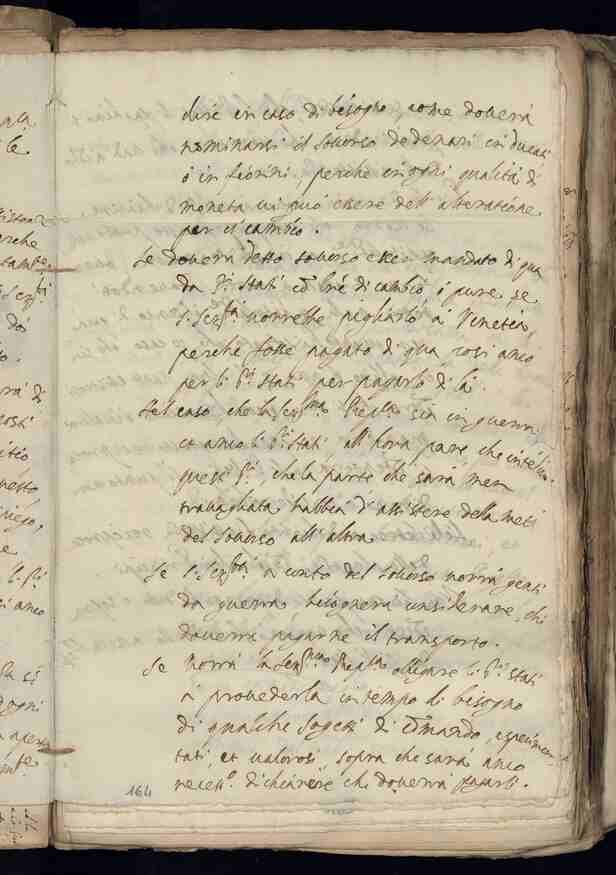 dire in caso di bisogno, come doverà
nominarsi il socorso de denari in ducati
ò in fiorini, perche in ogni qualità di
moneta vi può essere dell'alteratione
per il cambio.
Se doverà detto socorso esser mandato di qua
da Sri Stati con lre di cambio ò pure se
S. Serta vorrebbe pigliarlo à Venetia,
perche fosse pagato di qua così anco
per li Sri Stati per pagarlo di là.
Nel caso che la Serma Repca sia in guerra
et anco li Sri Stati, all'hora pare, che intēdino
questi Sri che la parte che sarà men
travagliata habbia d'assistere della metà
del socorso all'altra.
Se S. Serta à conto del socorso vorrà genti
da guerra bisognerà considerare, chi
doverrà pagarne il transporto.
Se vorrà la Serma Repca obligare li Sri Stati
à provederla in tempo di bisogno
di qualche sogetti di comando, esperimen
tati, et valorosi, sopra che sarà anco
necesso dichiarere chi doverrà pagarli.
164